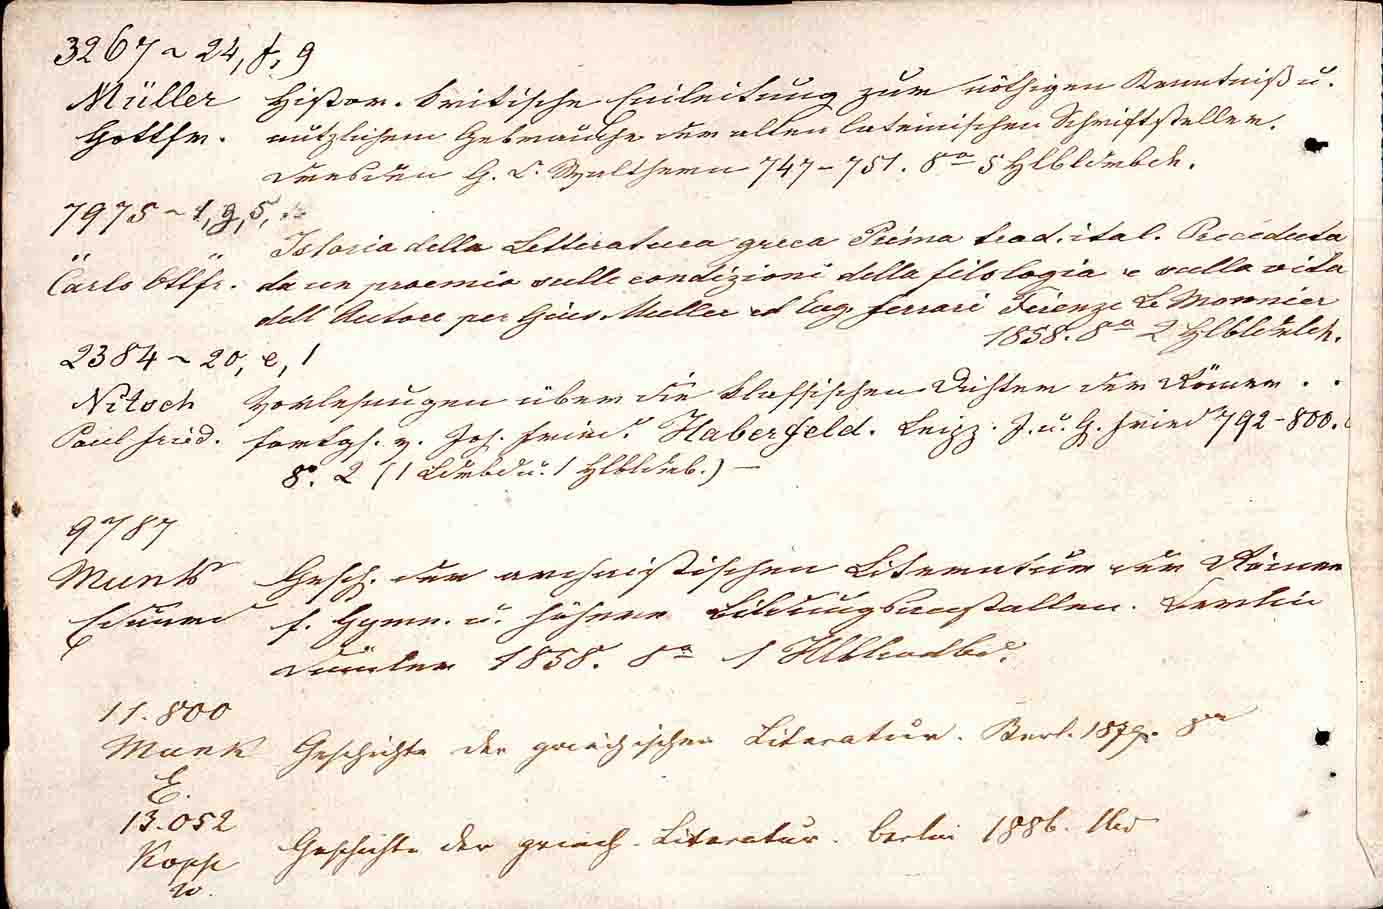 3267 ~ 24, f, 9
Müller Histor. kritische Einleitung zur nöthigen Kenntniß u.
Gottfr. nützlichem Gebrauche der alten lateinischen Schriftsteller.
Dresden G. C. Walthern 747-751. 8° 5 Hlbldrbde.
7975 ~ 1, g, 5,
Istoria della Letteratura greca Prima trad. ital. Preceduta
" Carlo Ottfr. da un proemio sulle condizioni della filologia e sulla vita
dell' Autore per Gius. Muller ed Eug. Ferrari Firenze Le Monnier
1858. 8° 2 Hlbldrbde.
2384 ~ 20, e, 1
Nitsch Vorlesungen über die klassischen Dichter der Römer . .
Paul Fried. fortgs. v. Joh. Fried. Haberfeld. Leipz. J. u. G. Fried 792-800.
8°. 2 (1 Ldrbd u. 1 Hlbldrb.) —
9787
Munk Gesch. der archaistischen Literatur der Römer
Eduard f. Gymn. u. höhere Bildungsanstalten. Berlin
Dümler 1858. 8° 1 Hlblindbd.
11.800
Munk Geschichte der griechischen Literatur. Berl. 1879. 8°
E.
13.052
Kopp Geschichte der griech. Literatur. Berlin 1886. 1 Bd
W.